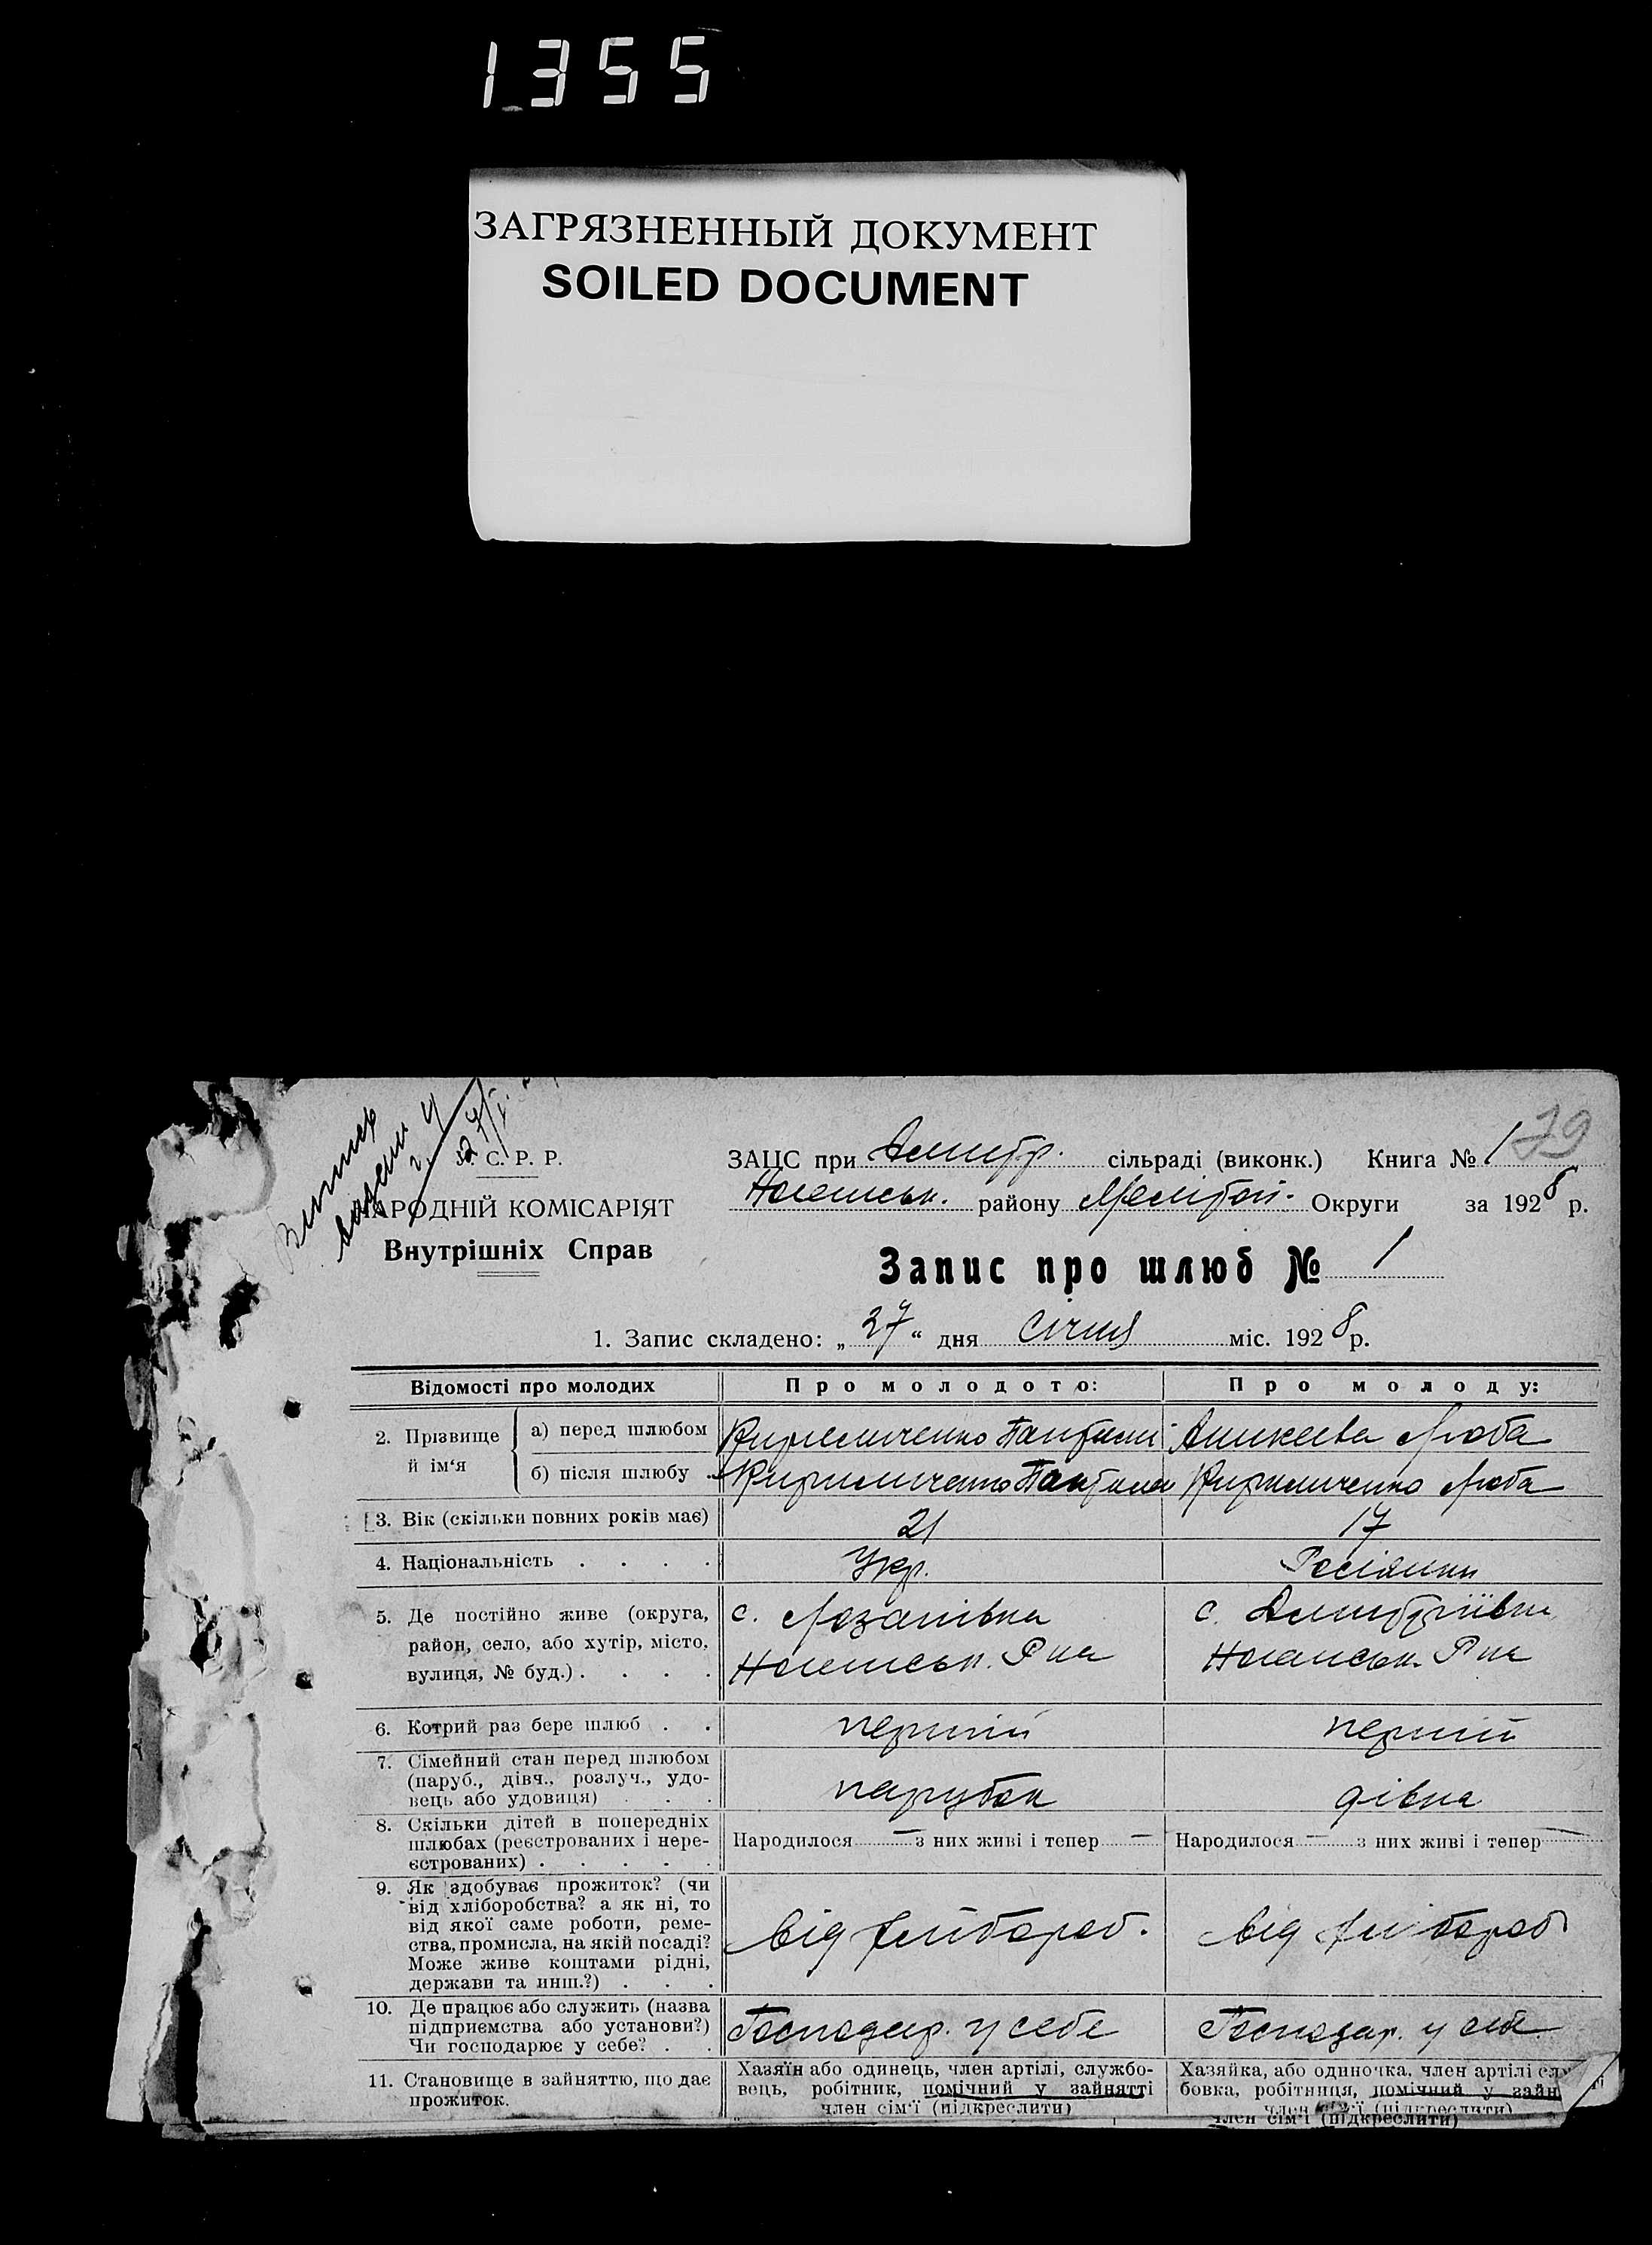 1355
ЗАГРЯЗНЕННЫЙ ДОКУМЕНТ
SOILED DOCUMENT
79
У. С. Р. Р.
НАРОДНІЙ КОМІСАРІЯТ
Внутрішніх Справ
ЗАЦС при Дмитр. сільраді (виконк.) Книга № 1
Ногайськ. району Мелітоп. Округи за 1928 р.
Запис про шлюб № 1
1. Запис складено: „27“ дня Січня міс. 1928 р.
Відомості про молодих
Про молодого:
Про молоду:
2. Прізвище й ім‘я
а) перед шлюбом
Кириличенко
Аникеева Люба
б) після шлюбу
Кириличенко
Кириличенко Люба
3. Вік (скільки повних років має)
21
17
4. Національність . . . .
Укр.
Росіянка
5. Де постійно живе (округа,
район, село, або хутір, місто,
вулиця, № буд.) . . . .
с. Лозанівка
Ногаиськ. Р на
с. Дмитріївка
Ногаиськ. Р на
6. Котрий раз бере шлюб . .
перший
перший
7. Сімейний стан перед шлюбом
(паруб., дівч., розлуч., удо-
вець або удовиця) . . .
парубок
дівка
8. Скільки дітей в попередніх
шлюбах (реєстрованих і нере-
єстрованих) . . . . .
Народилося — з них живі і тепер —
Народилося — з них живі і тепер —
9. Як здобуває прожиток? (чи
від хліборобства? а як ні, то
від якої саме роботи, реме-
ства, промисла, на якій посаді?
Може живе коштами рідні,
держави та инш.?) . . .
від хлібороб.
від хлібороб
10. Де працює або служить (назва
підприємства або установи?)
Чи господарює у себе? . .
Господар. у себе
Господар. у себе
11. Становище в зайняттю, що дає
прожиток.
Хазяїн або одинець, член артілі, службо-
вець, робітник, помічний у зайнятті
член сім‘ї (підкреслити)
Хазяйка, або одиночка, член артілі сл
бовка, робітниця, помічний у зайн
член сім‘ї (підкреслити)
член сім‘ї (підкреслити)